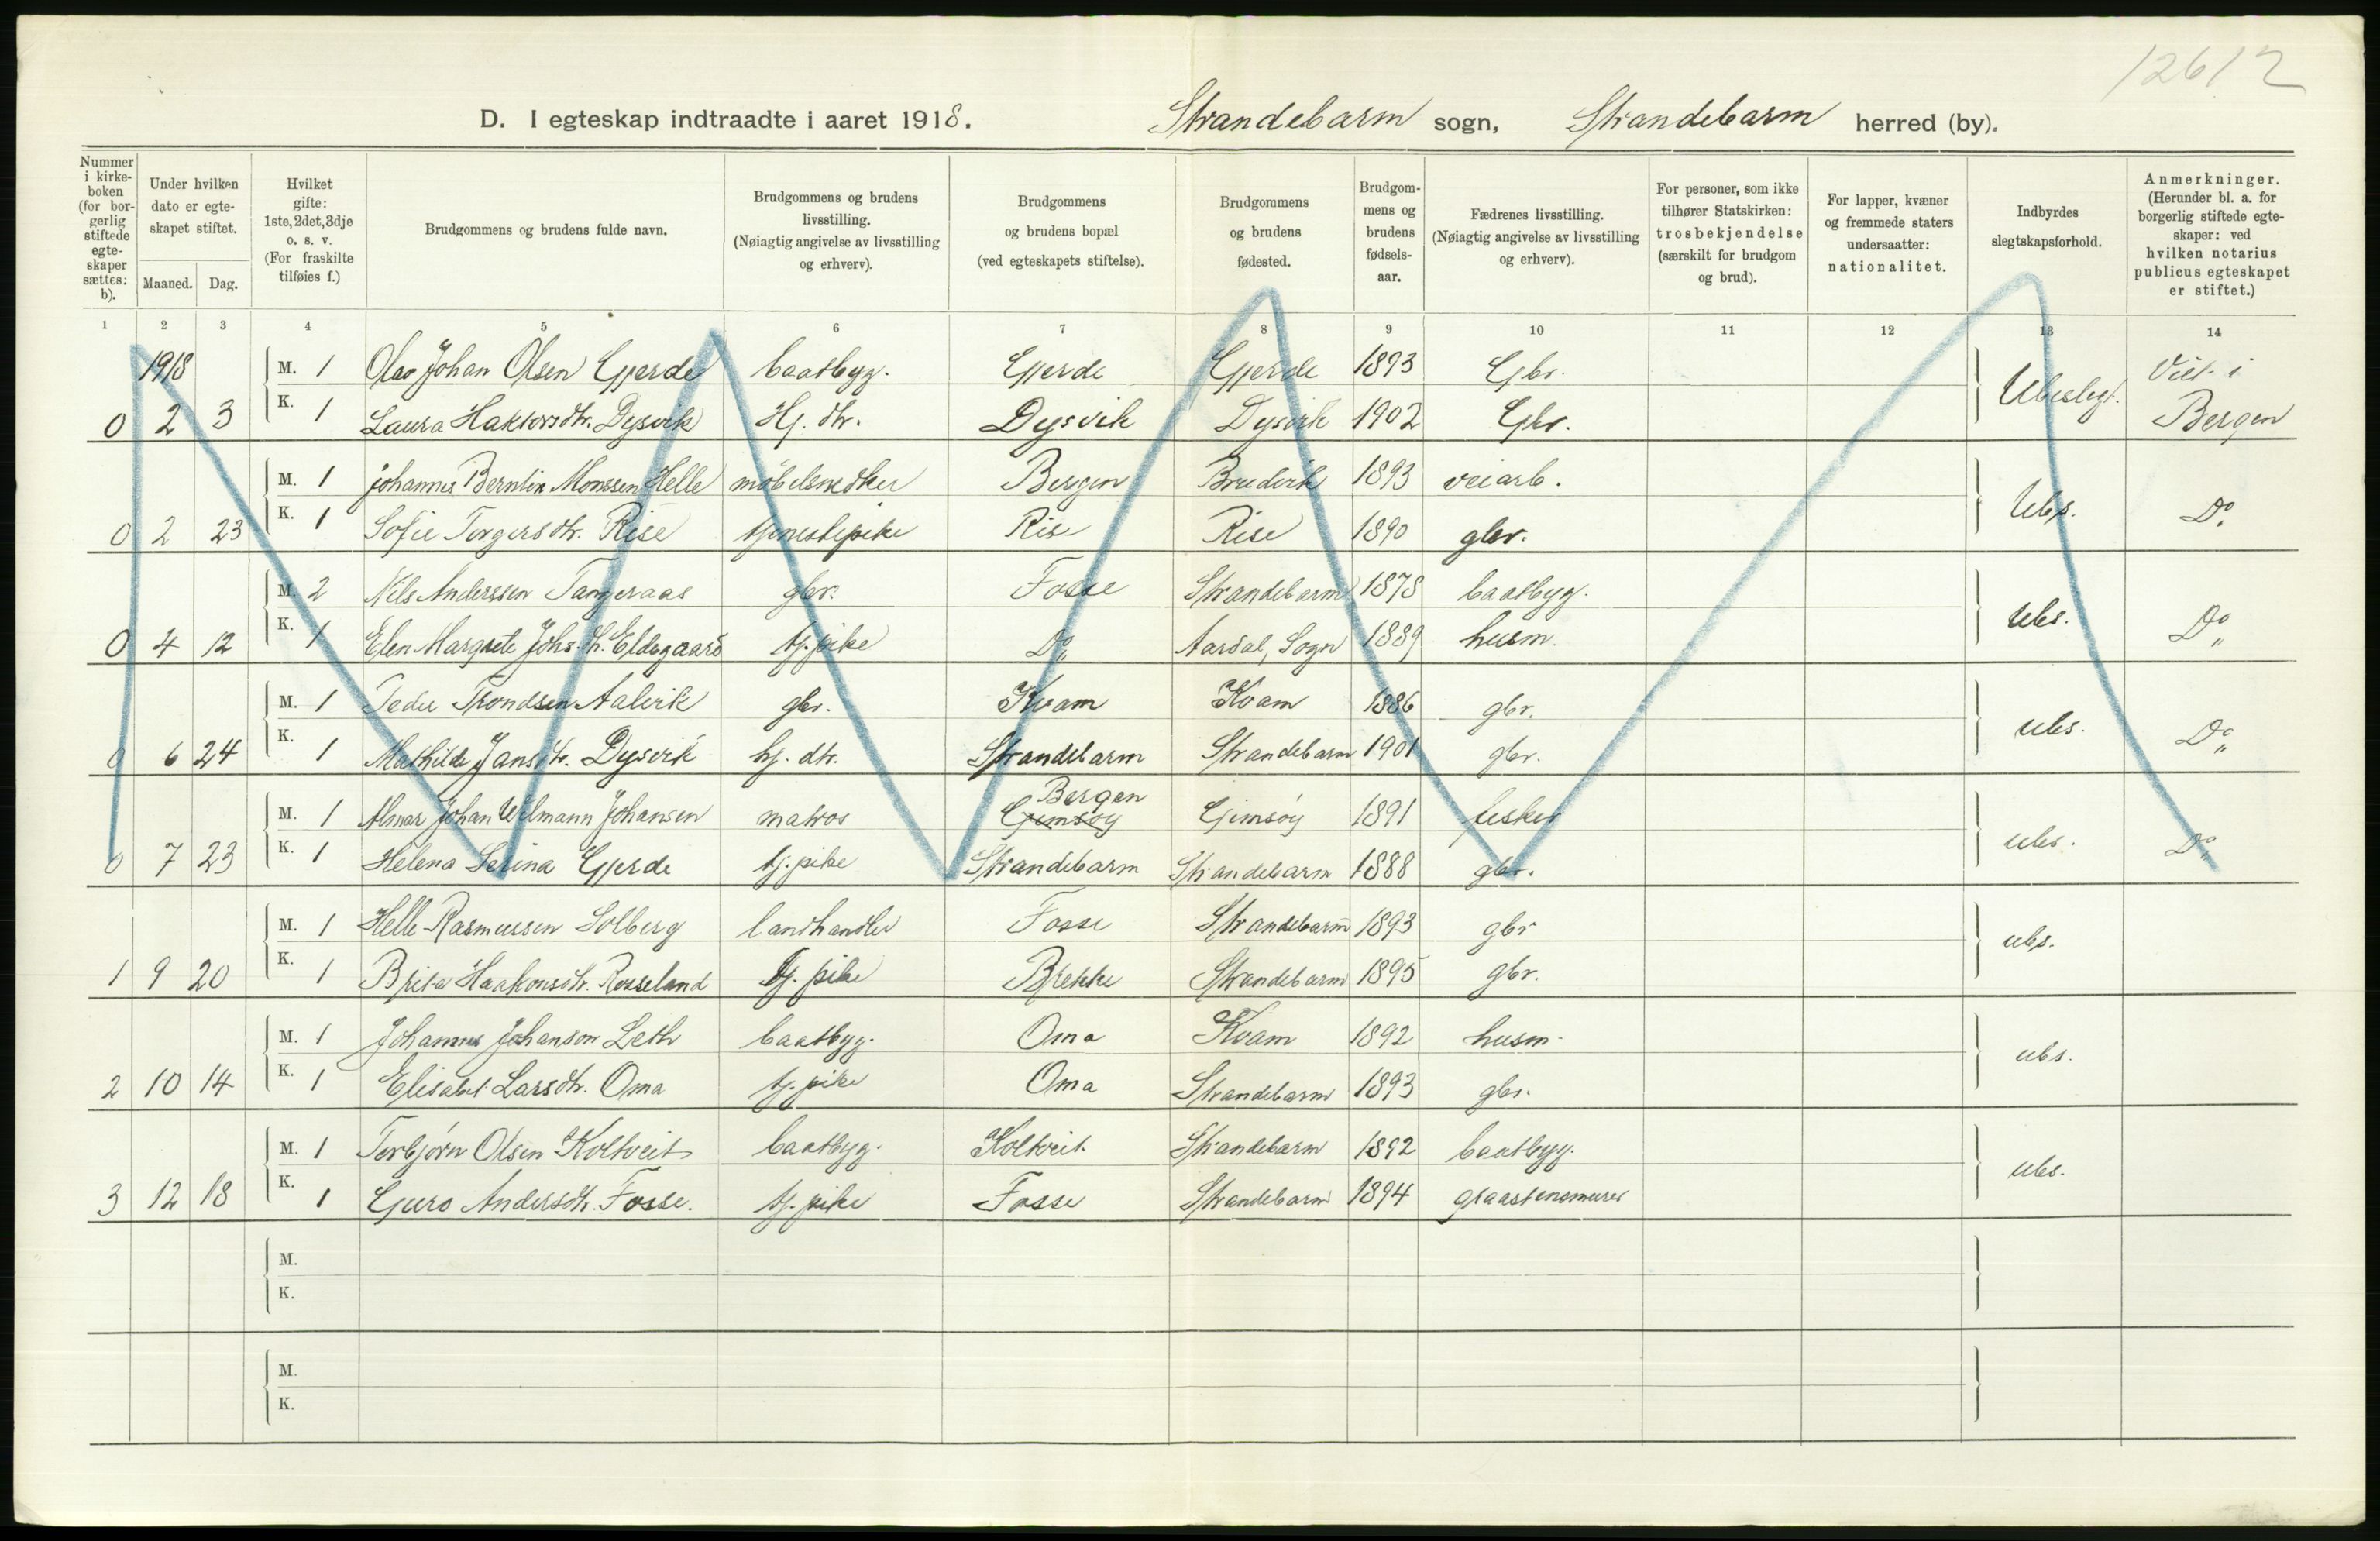 12612
D. I egteskap indtraadte i aaret 1918. Strandebarm sogn, Strandebarm herred (by).
Nummer i kirke-boken (for bor-gerlig stiftede egte-skaper sættes: b).
Under hvilken dato er egte-skapet stiftet.
Maaned. Dag.
Hvilket gifte: 1ste, 2det, 3dje o. s. v. (For fraskilte tilføies f.)
Brudgommens og brudens fulde navn.
Brudgommens og brudens livsstilling. (Nøiagtig angivelse av livsstilling og erhverv).
Brudgommens og brudens bopæl (ved egteskapets stiftelse).
Brudgommens og brudens fødested.
Brudgom-mens og brudens fødsels-aar.
Fædrenes livsstilling. (Nøiagtig angivelse av livsstilling og erhverv).
For personer, som ikke tilhører Statskirken: trosbekjendelse (særskilt for brudgom og brud).
For lapper, kvæner og fremmede staters undersaatter: nationalitet.
Indbyrdes slegtskapsforhold.
Anmerkninger. (Herunder bl. a. for borgerlig stiftede egte-skaper: ved hvilken notarius publicus egteskapet er stiftet.)
1 2 3 4 5 6 7 8 9 10 11 12 13 14
1918 M. 1 Olav Johan Olsen Gjerde baatbyg. Gjerde Gjerde 1893 Gbr. Ubeslegt. Viet i
0 2 3 K. 1 Laura Hakonsdtr. Dysvik Hj. dtr. Dysvik Dysvik 1902 Gbr. Bergen
M. 1 Johannes Berntin Monssen Helle möbelsnedker Bergen 1893 veiarb. Ubs. Do
0 2 23 K. 1 Sofie Torgersdtr. Rise tjenestepike Rise Rise 1890 gbr.
M. 2 Nils Anderssen Tangeraas gbr. Fosse Strandebarm 1878 baatbyg. ubs. Do
0 4 12 K. 1 Elen Margrete Johs. dt. Eldegaard tj. pike Do Aardal, Sogn 1889 husm.
M. 1 Peder Trondsen Aalvik gbr. Kvam Kvam 1886 gbr. ubs. Do
0 6 24 K. 1 Mathilde Jansdtr. Dysvik hj. dtr. Strandebarm Strandebarm 1901 gbr.
Bergen
M. 1 Almar Johan Wilmann Johansen matros Gjimsöy Gjimsöy 1891 fisker ubs. Do
0 7 23 K. 1 Helena Serina Gjerde tj. pike Strandebarm Strandebarm 1888 gbr.
M. 1 Helle Rasmussen Solberg landhandler Fosse Strandebarm 1893 gbr ubs.
1 9 20 K. 1 Brita Haakonsdtr. Rosseland tj. pike Brekke Strandebarm 1895 gbr.
M. 1 Johannes Johanson Leth baatbyg. Oma Kvam 1892 husm. ubs.
2 10 14 K. 1 Elisabet Larsdtr. Oma tj. pike Oma Strandebarm 1893 gbr.
M. 1 Torbjörn Olsen Koltveit baatbyg. Koltveit. Strandebarm 1892 baatbyg. ubs.
3 12 18 K. 1 Guro Andersdtr. Fosse. tj. pike Fosse Strandebarm 1894 graastensmurer
M.
K.
M.
K.